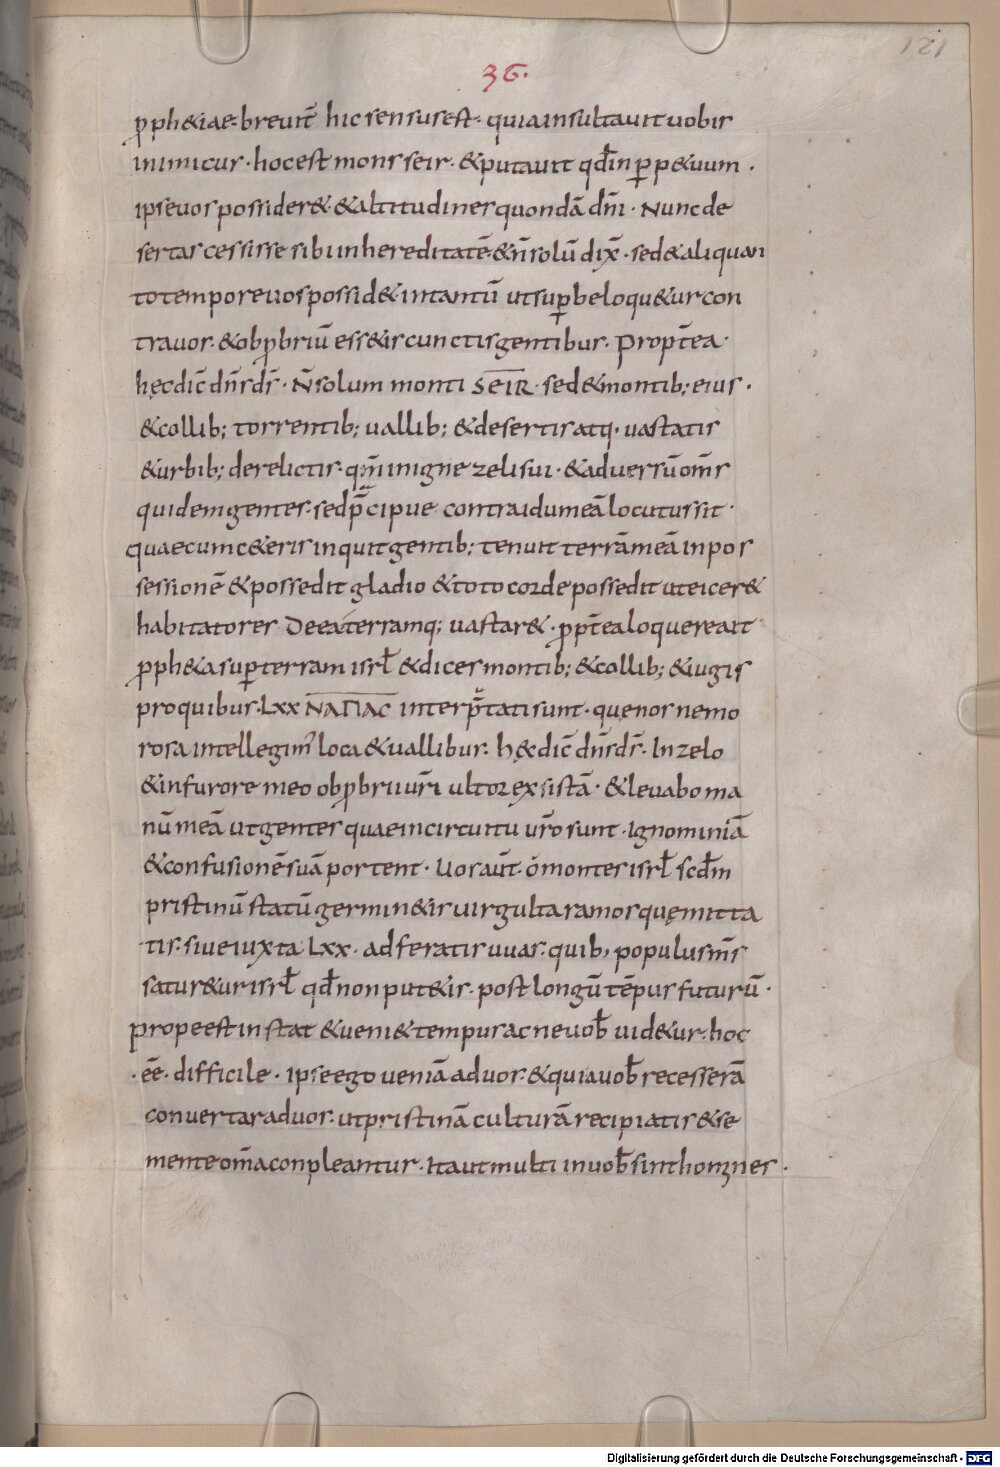 121
36.
ꝓph&iae· breuit̄ hic sensus est· quia insultauit uobis
inimicus· hoc est mons seir· & putauit qđ in ꝑp&uum·
ipse uos possider&· & altitudines quondā dn̄i· Nunc de
sertas cessisse sibi in hereditatē· & n̄ solū dix̄· sed & aliquan
to tempore uos possid& intantū ut suꝑbe loqu&ur con
tra uos· & obꝓbriū ess&is cunctis gentibus· Propt̄ea·
hęc dic̄ dn̄s ds̄· N̄ solum monti SEIR· sed & montib; eius·
& collib; torrentib; uallib; & desertis atq· uastatis
& urbib; derelictis· qm̄ in igne zeli sui· & aduersū om̄s
quidem gentes· sed p̄cipue contra idumeā locutus sit·
quaecumc&eris inquit gentib; tenuit terrā meā in pos
sessionē & possedit gladio & toto corde possedit ut eicer&
habitatores de ea terramq; uastar&· ꝓpt̄ea loquere ait
ꝓph&a suꝑ terram isrl̄ & dices montib; & collib; & iugis
pro quibus· Lxx ΝΑΠΑC interp̄tati sunt· que nos nemo
rosa intellegim' loca & uallibus· hę& dic̄ dn̄s ds̄· In zelo
& in furore meo obꝓbrii ur̄i ultor exsistā· & leuabo ma
nū meā ut gentes quae in circuitu ur̄o sunt· Ignominiā
& confusionē suā portent· Uos aut̄· o montes isrl̄ scđm
pristinū statū germin&is uirgulta ramos quę mitta
tis· siue iuxta Lxx· adferatis uuas· quib; populus m̄s
satur&ur isrl̄ qđ non put&is· post longū tēpus futurū·
prope est instat & ueni& tempus ac ne uob̄ uid&ur· hoc
·eē· difficile· ipse ego ueniā ad uos· & quia uob̄ recesserā
conuertar ad uos· ut pristinā culturā recipiatis & se
mente om̄a conpleantur· Ita ut multi in uob̄ sint homines·
Digitalisierung gefördert durch die Deutsche Forschungsgemeinschaft - DFG